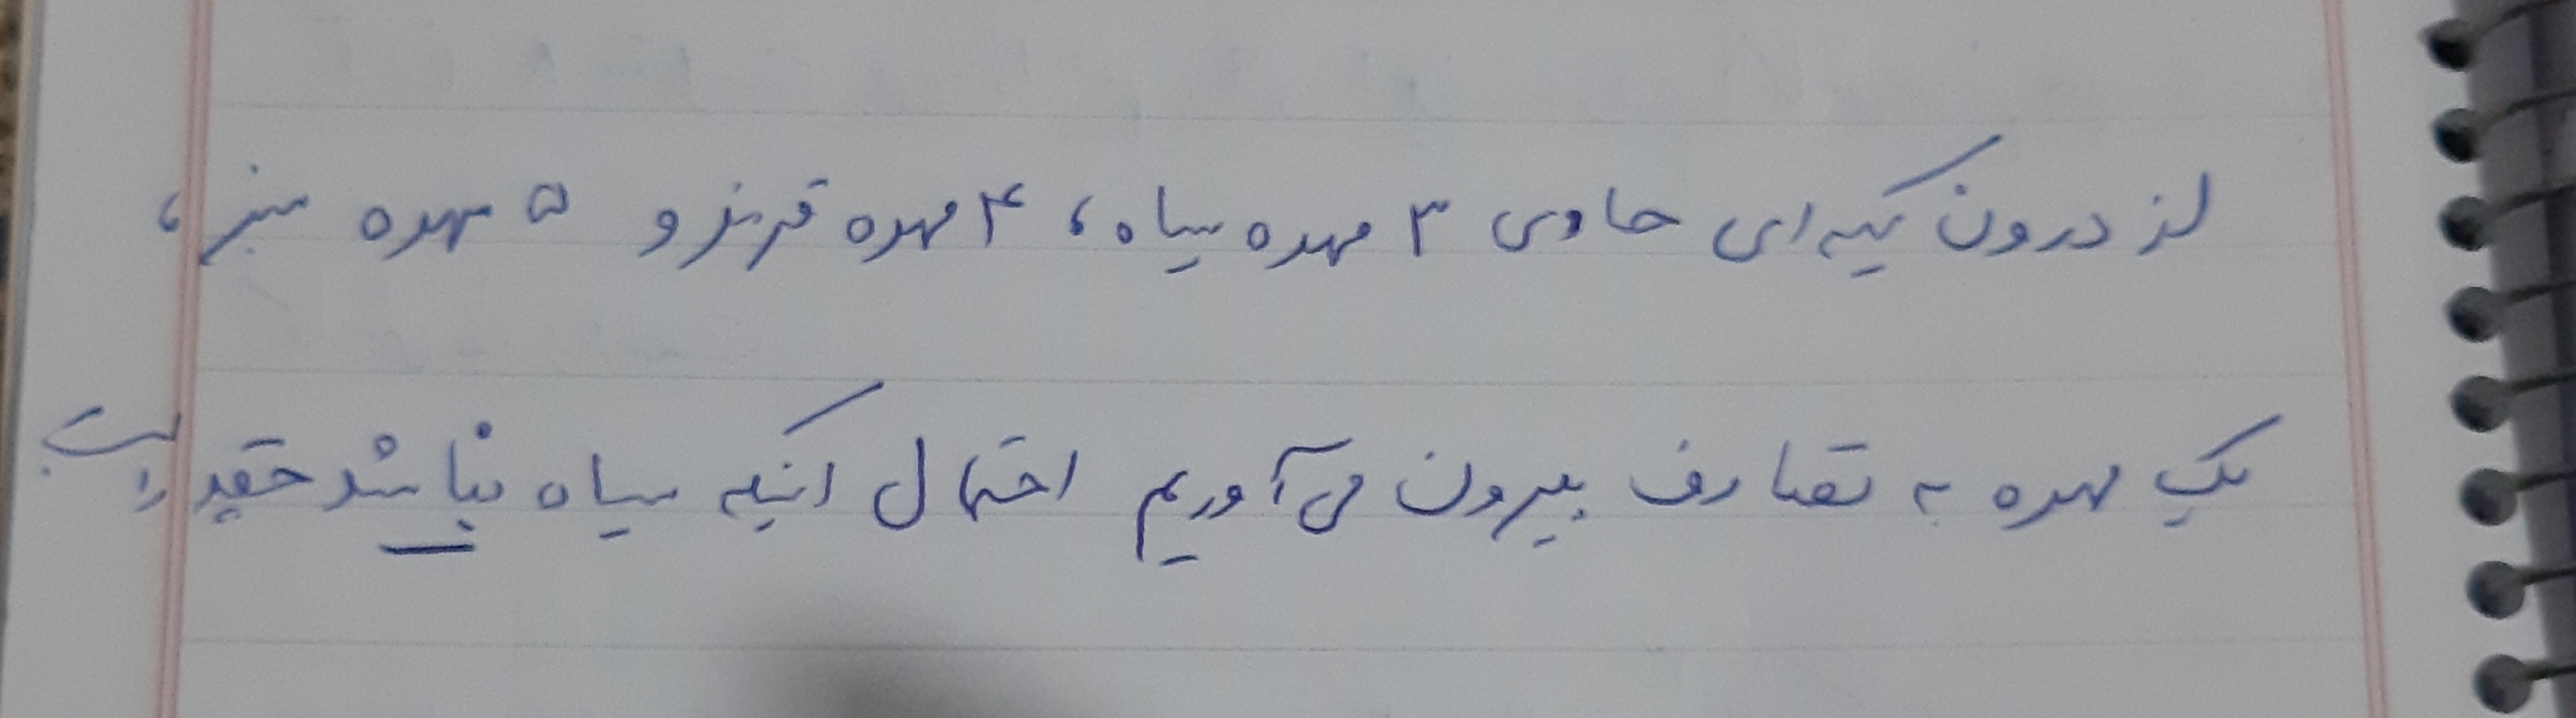 از درون کیسه ای حاوی ۳ مهره سیاه، ۴ مهره قرمز و ۵ مهره سبز،
یک مهره به تصادف بیرون می آوریم احتمال اینکه سیاه نباشد چقدر است